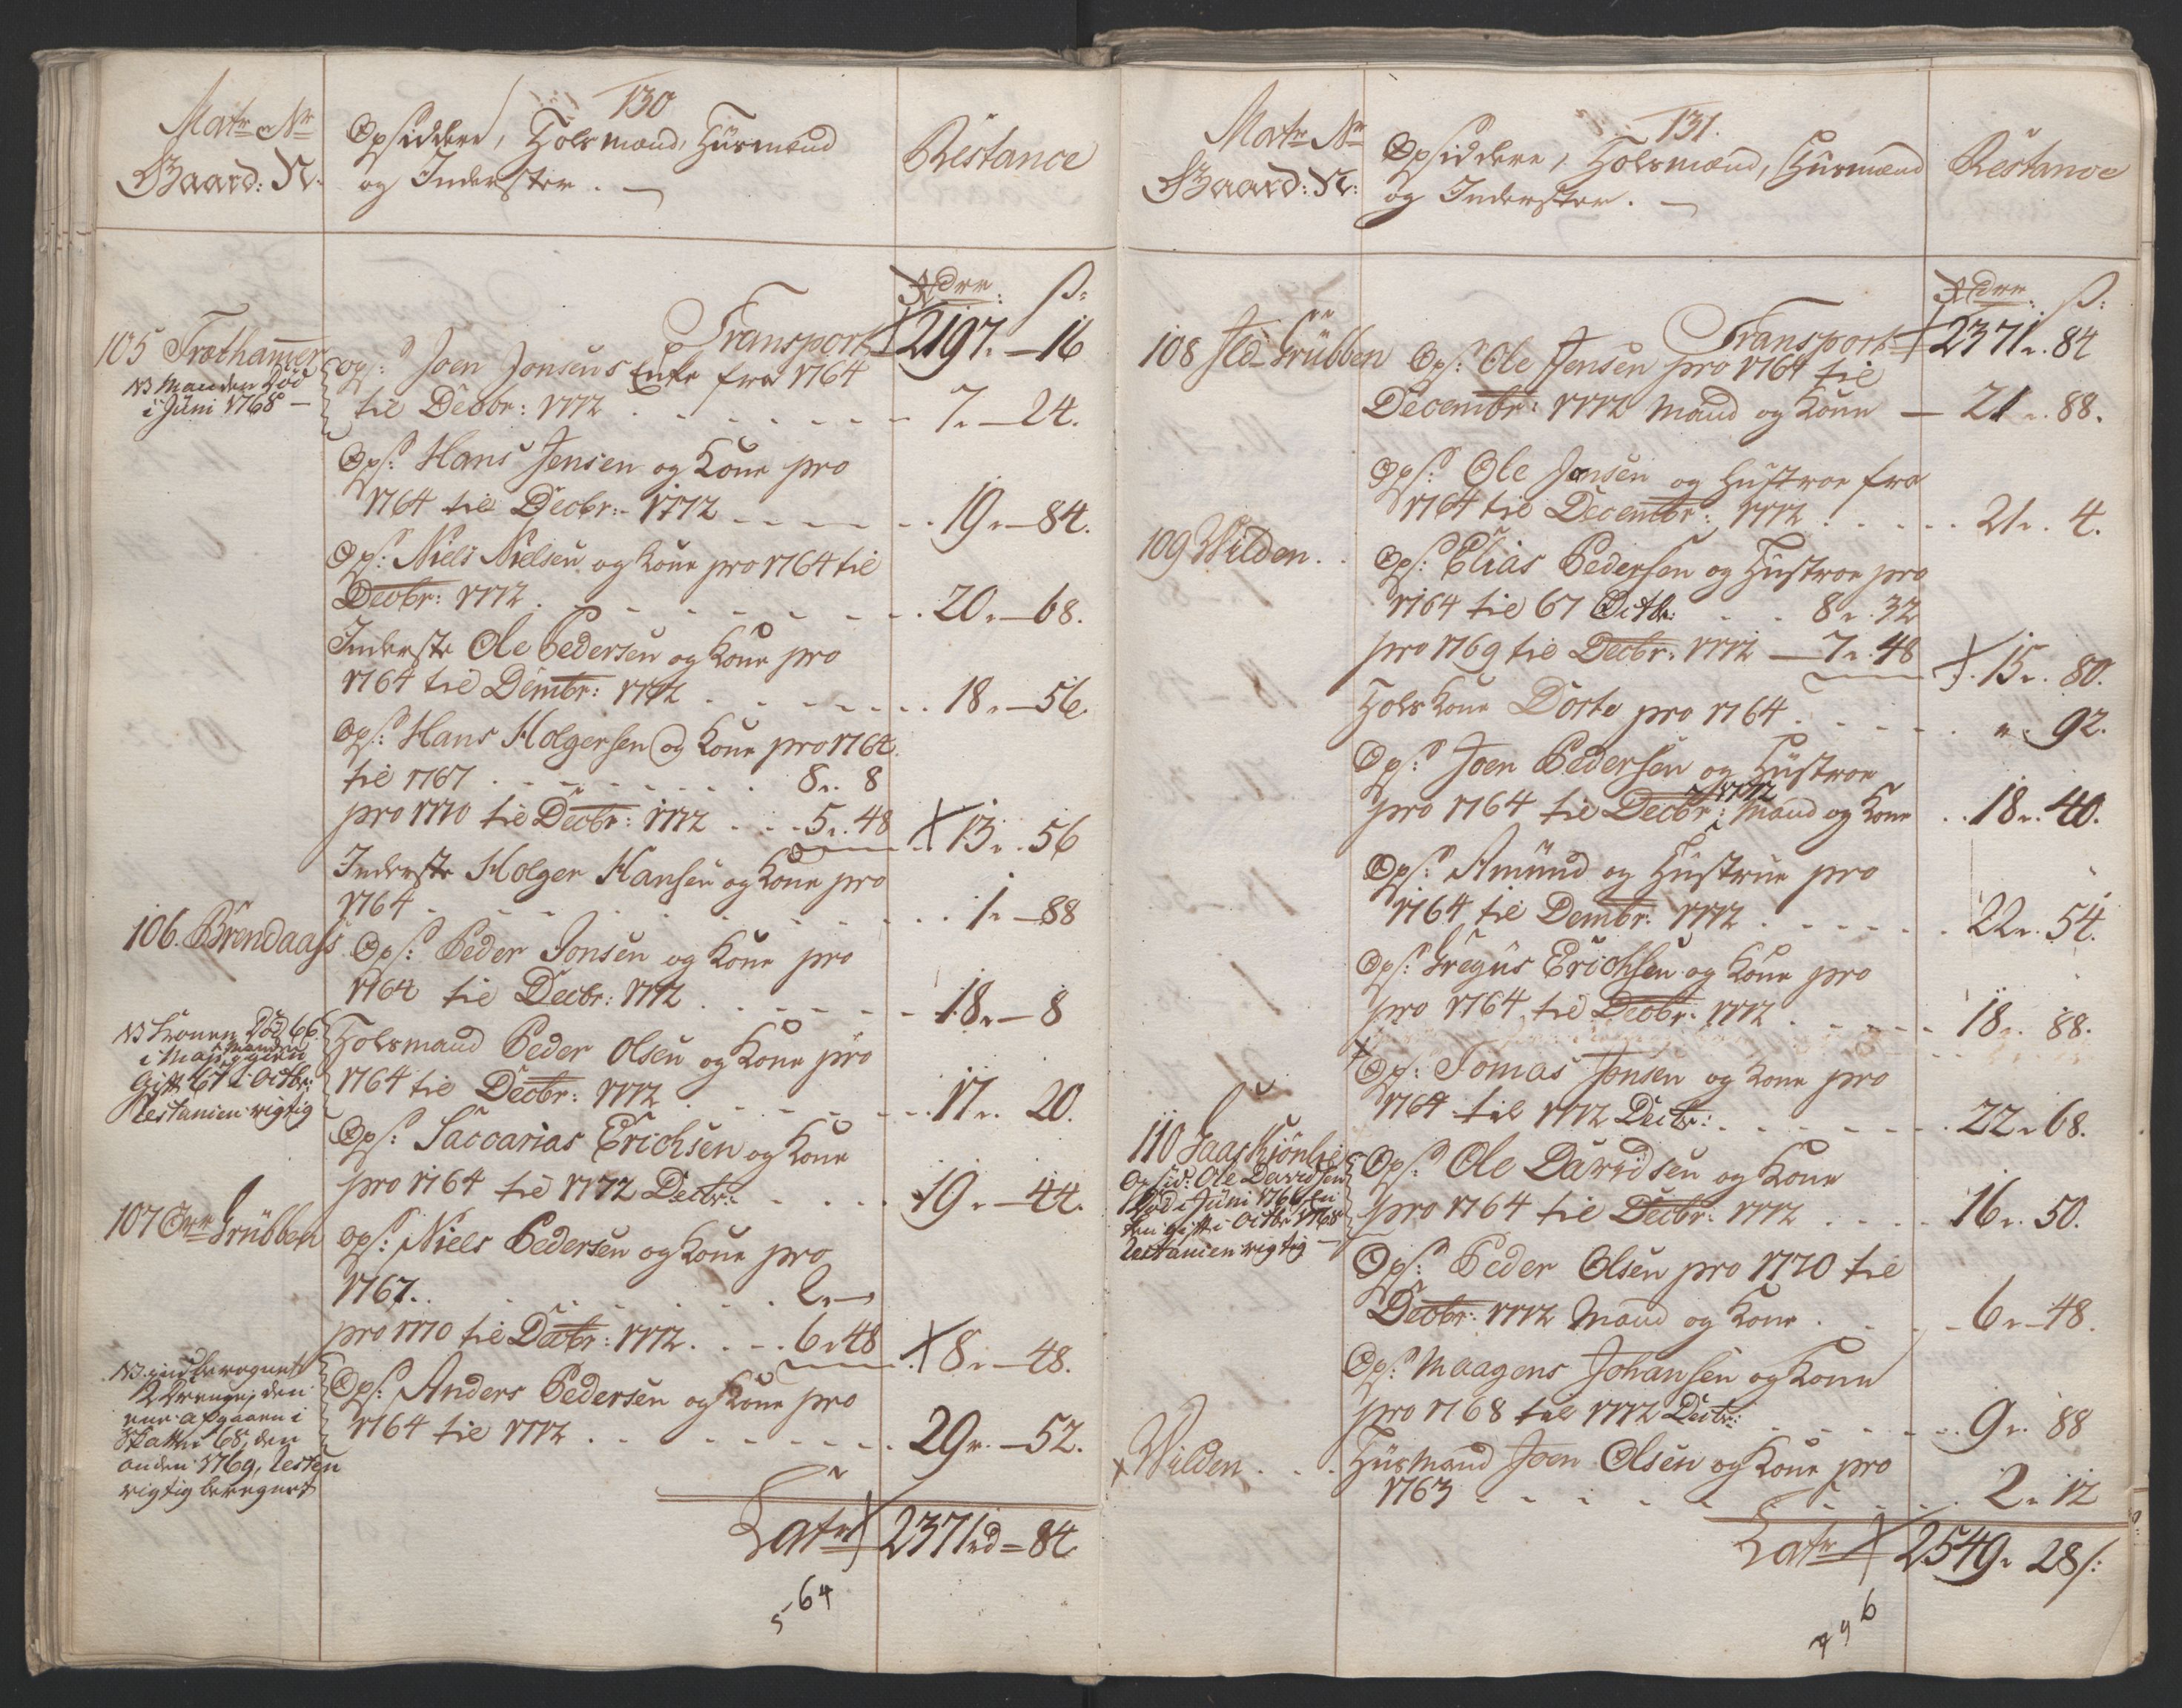 130
Matr Nr
Gaard: N.
Opsiddere, Holsmænd, Husmænd
og Inderster. —
Restance
Rdrr: ß:
Transport 2197. — 16
105 Træthammer
NB Manden Død
i Juni 1768 —
Ops: Joen Jonsens Enke fra 1764
til Decbr: 1772 . . . . . . 7. — 24.
Ops: Hans Jensen og Kone pro
1764 til Decbr: 1772 . . . . 19. — 84.
Ops: Niels Nielsen og Kone pro 1764 til
Decbr: 1772 . . . . . . . 20. — 68.
Inderste Ole Pedersen og Kone pro
1764 til Dembr: 1772 . . . . . 18. — 56.
Ops: Hans Holgersen og Kone pro 1764
til 1767 . . . . . . . 8. 8
pro 1770 til Decbr: 1772 . . . 5. 48 13. 56
Inderste Holger Hansen og Kone pro
1764 . . . . . . . . . 1. — 88
106. Brendaass
Ops: Peder Jonsen og Kone pro
1764 til Decbr: 1772 . . . . . 18. — 8
NB Konen Død 66
i Maj, Manden igien
Gift 67 i Octbr:
Restancen rigtig
Holsmand Peder Olsen og Kone pro
1764 til Decbr: 1772 . . . . . 17. 20.
Ops: Saccarias Erichsen og Kone
pro 1764 til 1772 Decbr: . . . . 19. — 44.
107 Øvre Grübben
Ops: Niels Pedersen og Kone pro
1767. . . . . . . . 2. —
pro 1770 til Decbr: 1772. . . . 6. 48 8. — 48.
NB indberegnet
2 Drenge, den
ene afgaaen i
Skatten 68, den
anden 1769, Resten
rigtig beregnet
Ops: Anders Pedersen og Kone pro
1764 til 1772 . . . . . . . 29. — 52.
Latr 2371rd = 84
564
131.
Matr Nr
Gaard: N:
Opsiddere, Holsmænd, Husmænd
og Inderster. —
Restance
Rdrr: ß:
Transport 2371. 84
108 Ned Grübben
Ops: Ole Jensen pro 1764 til
Decembr: 1772 Mand og Kone — 21. 88.
Ops: Ole Jonsen og Hustroe fra
1764 til Decembr: 1772 . . . . . 21. 4.
109 Wilden . .
Ops: Elias Pedersen og Hustroe pro
1764 til 67 Octbr: . . 8. 32
pro 1769 til Decbr: 1772 — 7. 48 15. 80.
Hols Kone Dorte pro 1764 . . . . . ". 92.
Ops: Joen Pedersen og Hustroe
pro 1764 til Decbr: 1772 Mand og Kone . . 18. 40.
Ops: Amünd og Hustrue pro
1764 til Dembr: 1772 . . . . . . 22. 54.
Ops: Gregus Erichsen og Kone pro
pro 1764 til Decbr: 1772 . . . . . 18. 88.
Ops: Tomas Jonsen og Kone pro
1764 til 1772 Decbr: . . . . . . 22. 68.
110 Saaskjönlie
Opsid: Ole Davidsen
Død i Juni 1766, En-
ken gift i Octbr 1768
Restancen rigtig —
Ops: Ole Davidsen og Kone
pro 1764 til Decbr: 1772 . . . . 16. 50.
Ops: Peder Olsen pro 1770 til
Decbr: 1772 Mand og Kone . . . . 6. — 48.
Ops: Maagens Johansen og Kone
pro 1768 til 1772 Decbr: . . . . . 9. 88
Wilden . . .
Husmand Joen Olsen og Kone pro
1763 . . . . . . . . 2. 12
Latr 2549. 28ß:
496